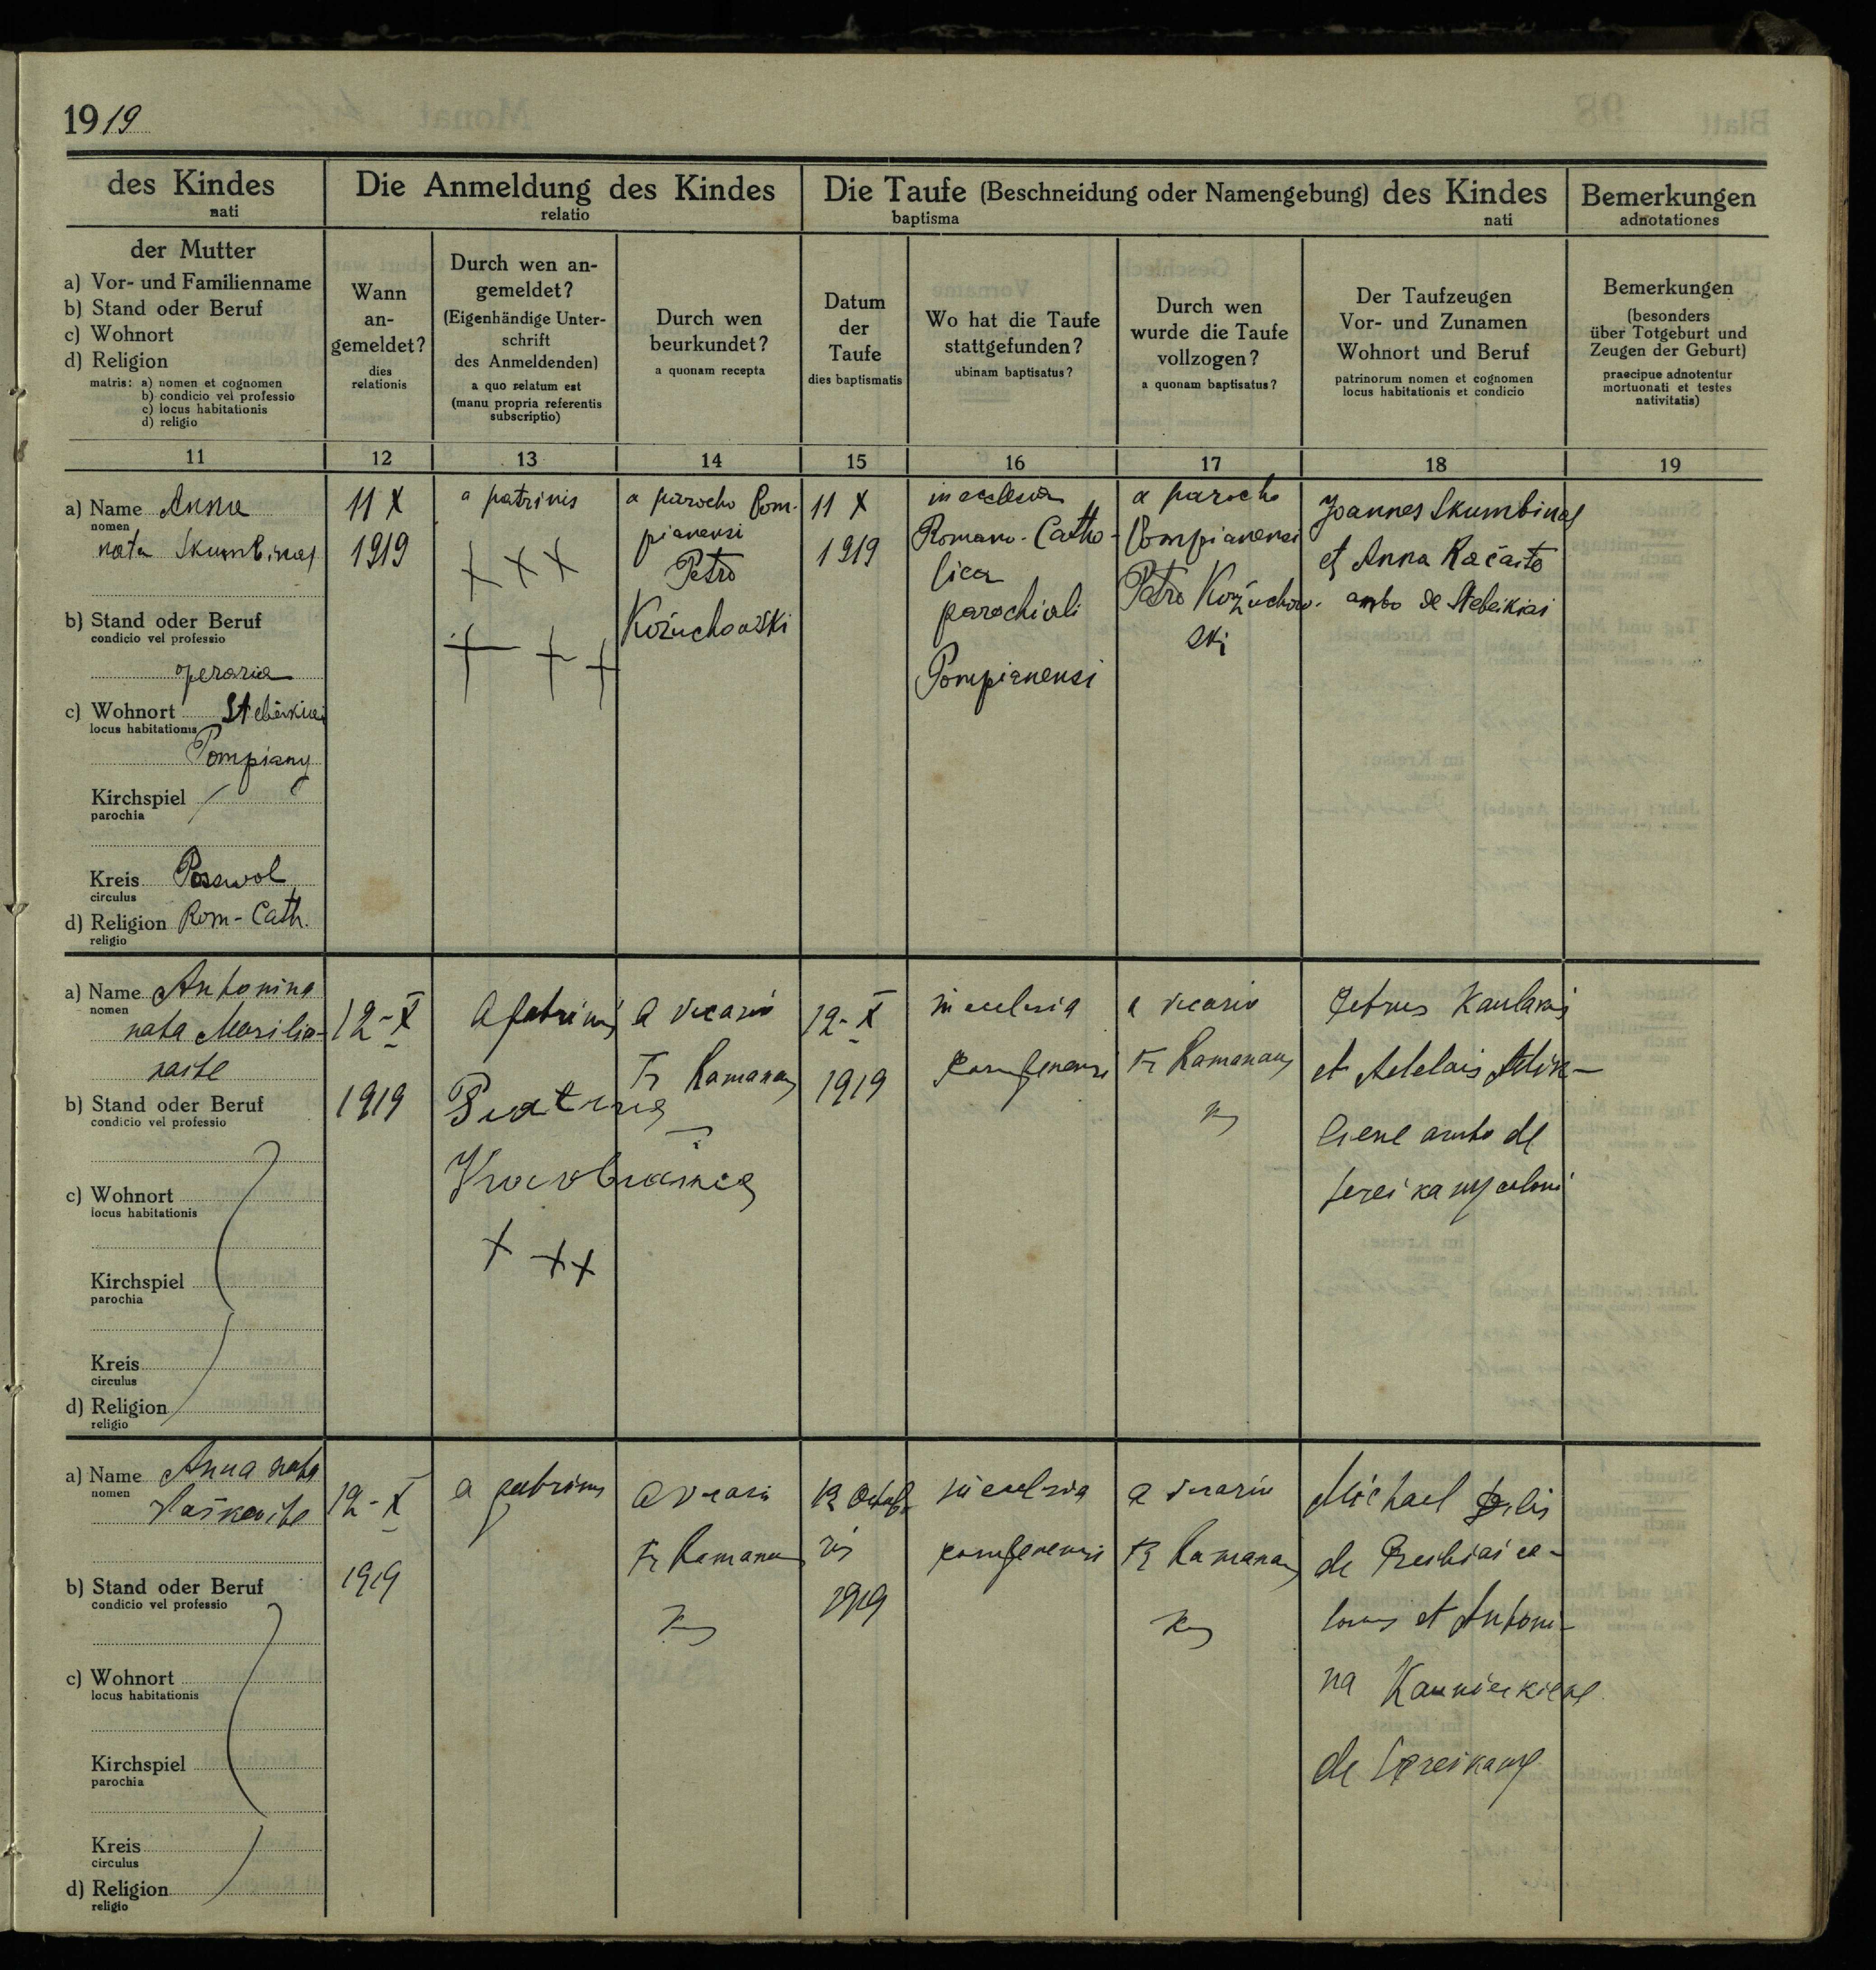 1919
des Kindes
nati
Die Anmeldung des Kindes
relatio
Die Taufe (Beschneidung oder Namengebung) des Kindes
baptisma nati
Bemerkungen
adnotationes
der Mutter
a) Vor- und Familienname
b) Stand oder Beruf
c) Wohnort
d) Religion
matris: a) nomen et cognomen
b) condicio vel professio
c) locus habitationis
d) religio
Wann
an-
gemeldet?
dies
relationis
Durch wen an-
gemeldet?
(Eigenhändige Unter-
schrift
des Anmeldenden)
a quo relatum est
(manu propria referentis
subscriptio)
Durch wen
beurkundet?
a quonam recepta
Datum
der
Taufe
dies baptismatis
Wo hat die Taufe
stattgefunden?
ubinam baptisatus?
Durch wen
wurde die Taufe
vollzogen?
a quonam baptisatus?
Der Taufzeugen
Vor- und Zunamen
Wohnort und Beruf
patrinorum nomen et cognomen
locus habitationis et condicio
Bemerkungen
(besonders
über Totgeburt und
Zeugen der Geburt)
praecipue adnotentur
mortuonati et testes
nativitatis)
11 12 13 14 15 16 17 18 19
a) Name Anna
nomen
nata
b) Stand oder Beruf
condicio vel professio
operaria
c) Wohnort
locus habitationis
Pompiany
Kirchspiel
parochia
Kreis Posswol
circulus
d) Religion Rom-Cath.
religio
11 X
1919
a patrinis
+ + +
+ + +
a parocho Pom-
pianensi
Petro
Kožuchowski
11 X
1919
in ecclesia
Romano-Catho-
lica
parochiali
Pompianensi
a parocho
Pompianensi
Petro Kožuchow-
ski
Joannes
et Anna Račaite
ambo de Stebeikiai
a) Name Antonina
nomen
nata
b) Stand oder Beruf
condicio vel professio
c) Wohnort
locus habitationis
Kirchspiel
parochia
Kreis
circulus
d) Religion
religio
12-X
1919
a patrinis
+ ++
a vicario
Fr Ramanau
12-X
1919
in ecclesia
a vicario
Fr Ramanau
Petrus
et
ambo de
a) Name Anna nata
nomen
b) Stand oder Beruf
condicio vel professio
c) Wohnort
locus habitationis
Kirchspiel
parochia
Kreis
circulus
d) Religion
religio
12-X
1919
a patrinis
a vicario
Fr Ramanau
12 Octob
ris
1919
in ecclesia
a vicario
Fr Ramanau
Michael
de co-
lonus et Antoni-
na
de